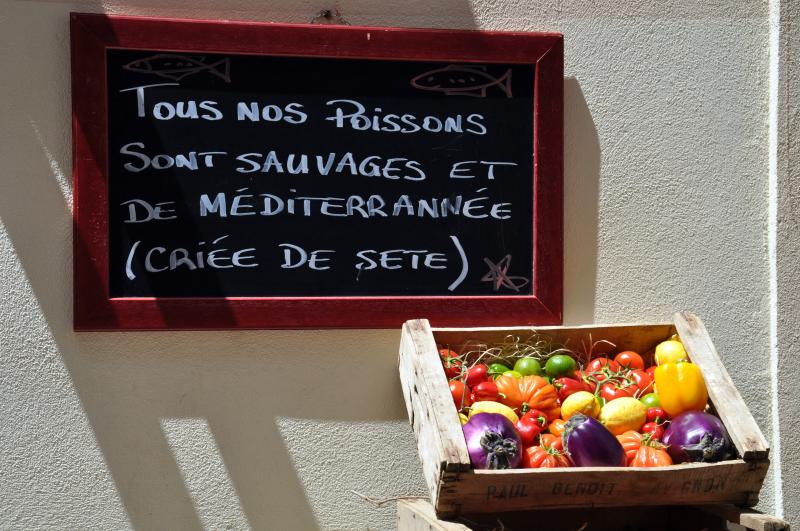 Tous nos Poissons
Sont sauvages et
de Méditerrannée
(criée de sete)
PAUL BENOIT AVIGNON